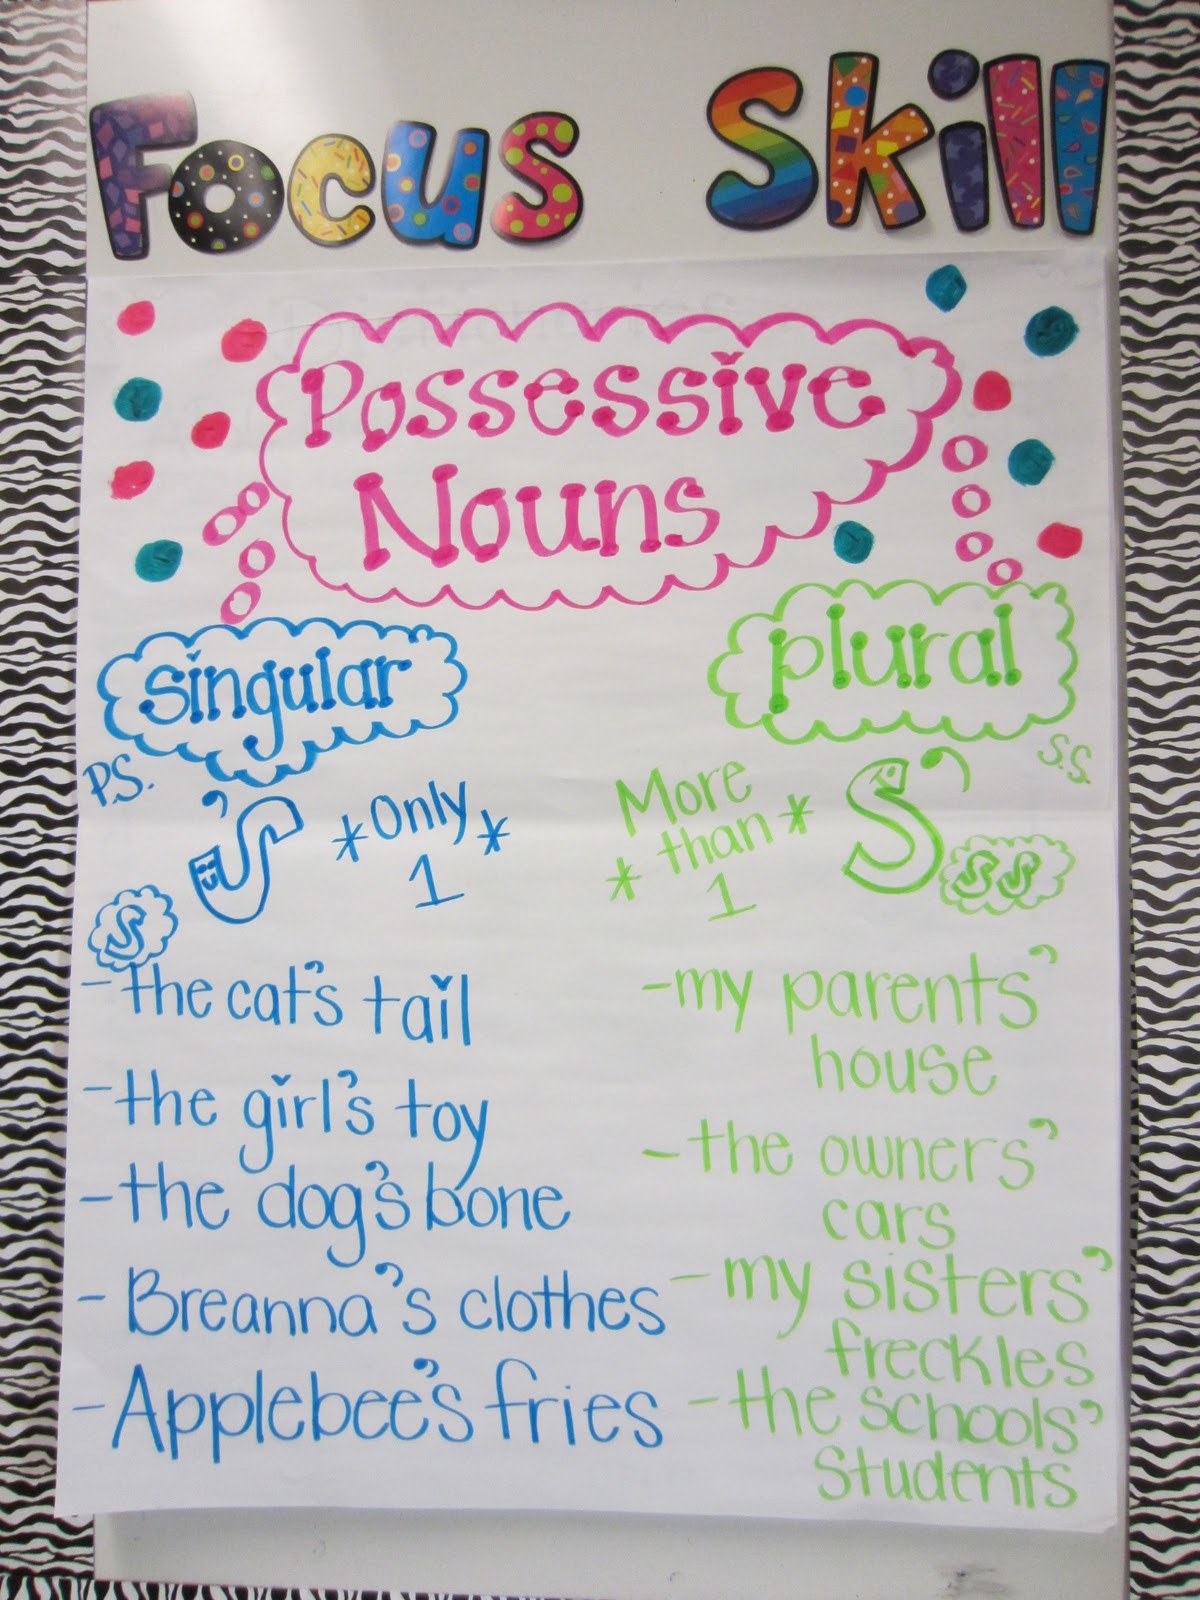 Focus Skill
Possessive
Nouns
singular
P.S.
's
*Only*
1
s
-the cat's tail
-the girl's toy
-the dog's bone
-Breanna's clothes
-Applebee's fries
plural
S.S.
More
* than *
1
s'
ss
-my parents'
house
-the owners'
cars
-my sisters'
freckles
-the schools'
students